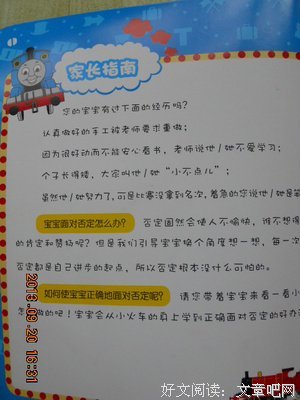 家长指南
您的宝宝有过下面的经历吗？
认真做好的手工被老师要求重做；
因为很好动而不能安心看书，老师说他/她不爱学习；
个子长得矮，大家叫他/她“小不点儿”；
虽然他/她努力了，可是比赛没拿到名次，着急的您说他/她是笨
宝宝面对否定怎么办？ 否定固然会使人不愉快，谁不想得
的肯定和赞扬呢？但是我们引导宝宝换个角度想一想，每一次
否定都是自己进步的起点，所以否定根本没什么可怕的。
如何使宝宝正确地面对否定呢？ 请您带着宝宝来看一看小
怎么做的吧！宝宝会从小火车的身上学到正确面对否定的好办
2013.09.20 16:31
好文阅读：文章吧网